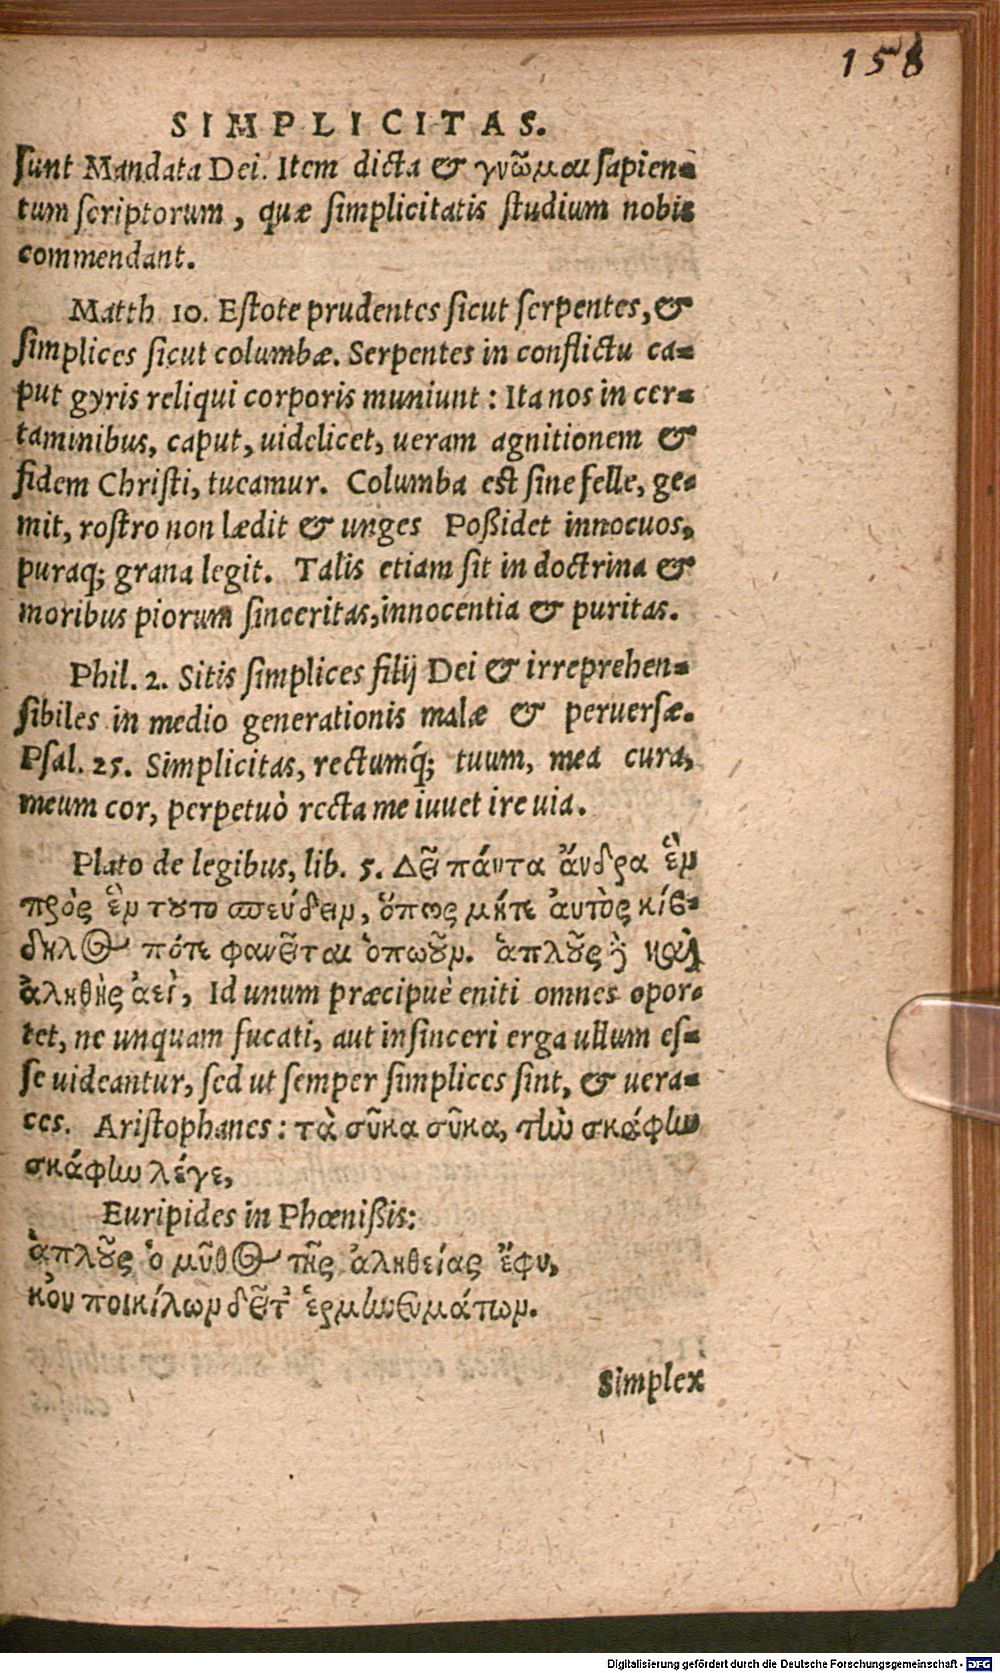 158
SIMPLICITAS.
sunt Mandata Dei. Item dicta & γνῶμαι sapien-
tum scriptorum, quæ simplicitatis studium nobis
commendant.
Matth 10. Estote prudentes sicut serpentes, &
simplices sicut columbæ. Serpentes in conflictu ca-
put gyris reliqui corporis muniunt : Ita nos in cer-
taminibus, caput, uidelicet, ueram agnitionem &
fidem Christi, tueamur. Columba est sine felle, ge-
mit, rostro non lædit & unges Poßidet innocuos,
puraq; grana legit. Talis etiam sit in doctrina &
moribus piorum sinceritas, innocentia & puritas.
Phil. 2. Sitis simplices filij Dei & irreprehen-
sibiles in medio generationis malæ & peruersæ.
Psal. 25. Simplicitas, rectumq́; tuum, mea cura,
meum cor, perpetuò recta me iuuet ire uia.
Plato de legibus, lib. 5. Δεῖ πάντα ἄνδρα ἓν
πρὸς ἓν τουτο σπεύδειν, ὅπως μήτε ἀυτὸς κίβ-
δηλος πότε φανεῖται ὁπωοῦν. ἁπλοῦς δὲ καὶ
ἀληθὴς ἀεὶ, Id unum præcipuè eniti omnes opor-
tet, ne unquam fucati, aut insinceri erga ullum es-
se uideantur, sed ut semper simplices sint, & uera-
ces. Aristophanes : τὰ σῦκα σῦκα, τὴν σκάφην
σκάφην λέγε,
Euripides in Phœnißis:
ἁπλοῦς ὁ μῦθος τῆς ἀληθείας ἔφυ,
κ᾽ου ποικίλων δεῖτ᾽ ἑρμηνευμάτων.
Simplex
Digitalisierung gefördert durch die Deutsche Forschungsgemeinschaft - DFG